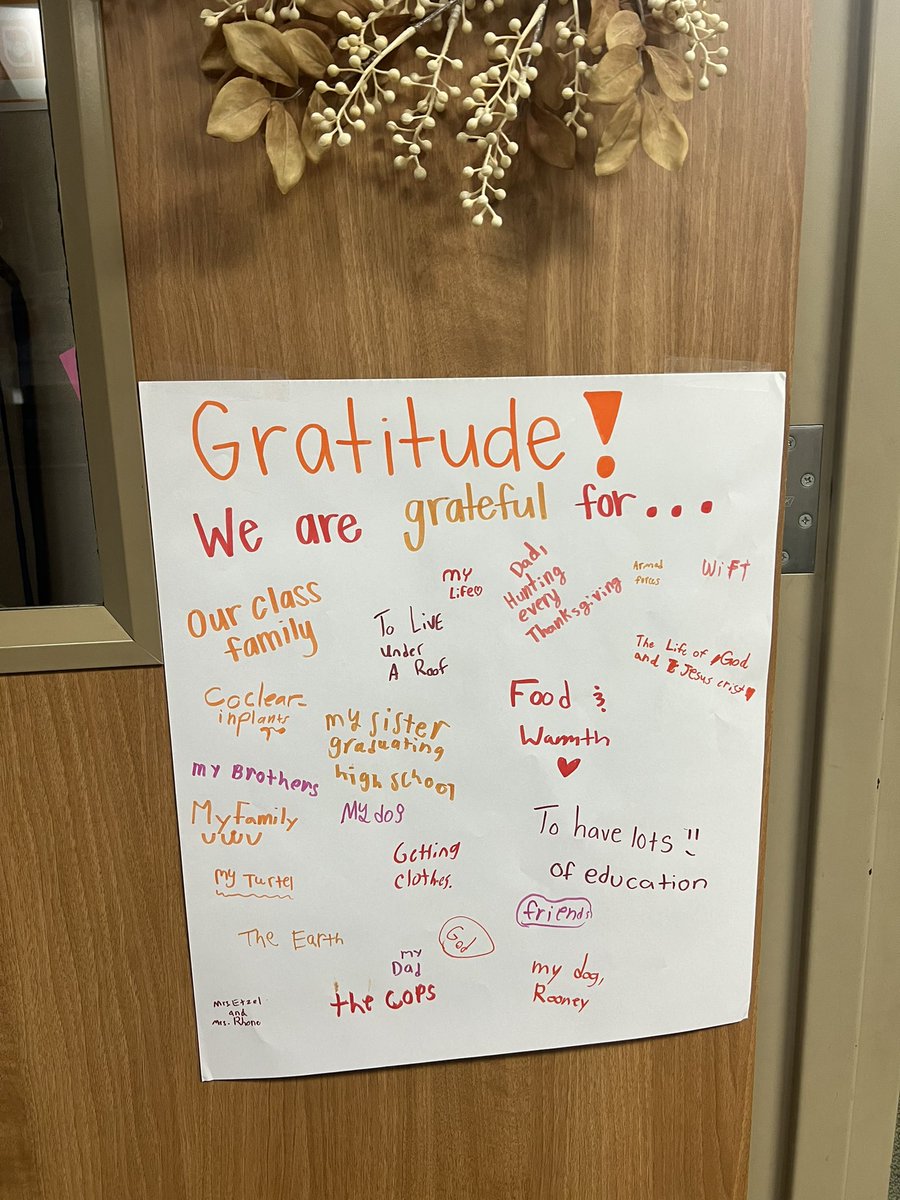 Gratitude!
We are grateful for...
Our class
family
my
Life♡
To Live
Under
A Roof
Dad,
Hunting
every
Thanksgiving
Armed
forces
Wift
The Life of God
and Jesus crist
Coclear-
inplants
my sister
graduating
high school
Food &
Warmth
my Brothers
My Family
My dog
To have lots
of education
Getting
clothes.
my Turtel
friends
The Earth
God
my
Dad
my dog,
Rooney
the cops
Mrs. Etzel
and
Mrs. Rhono